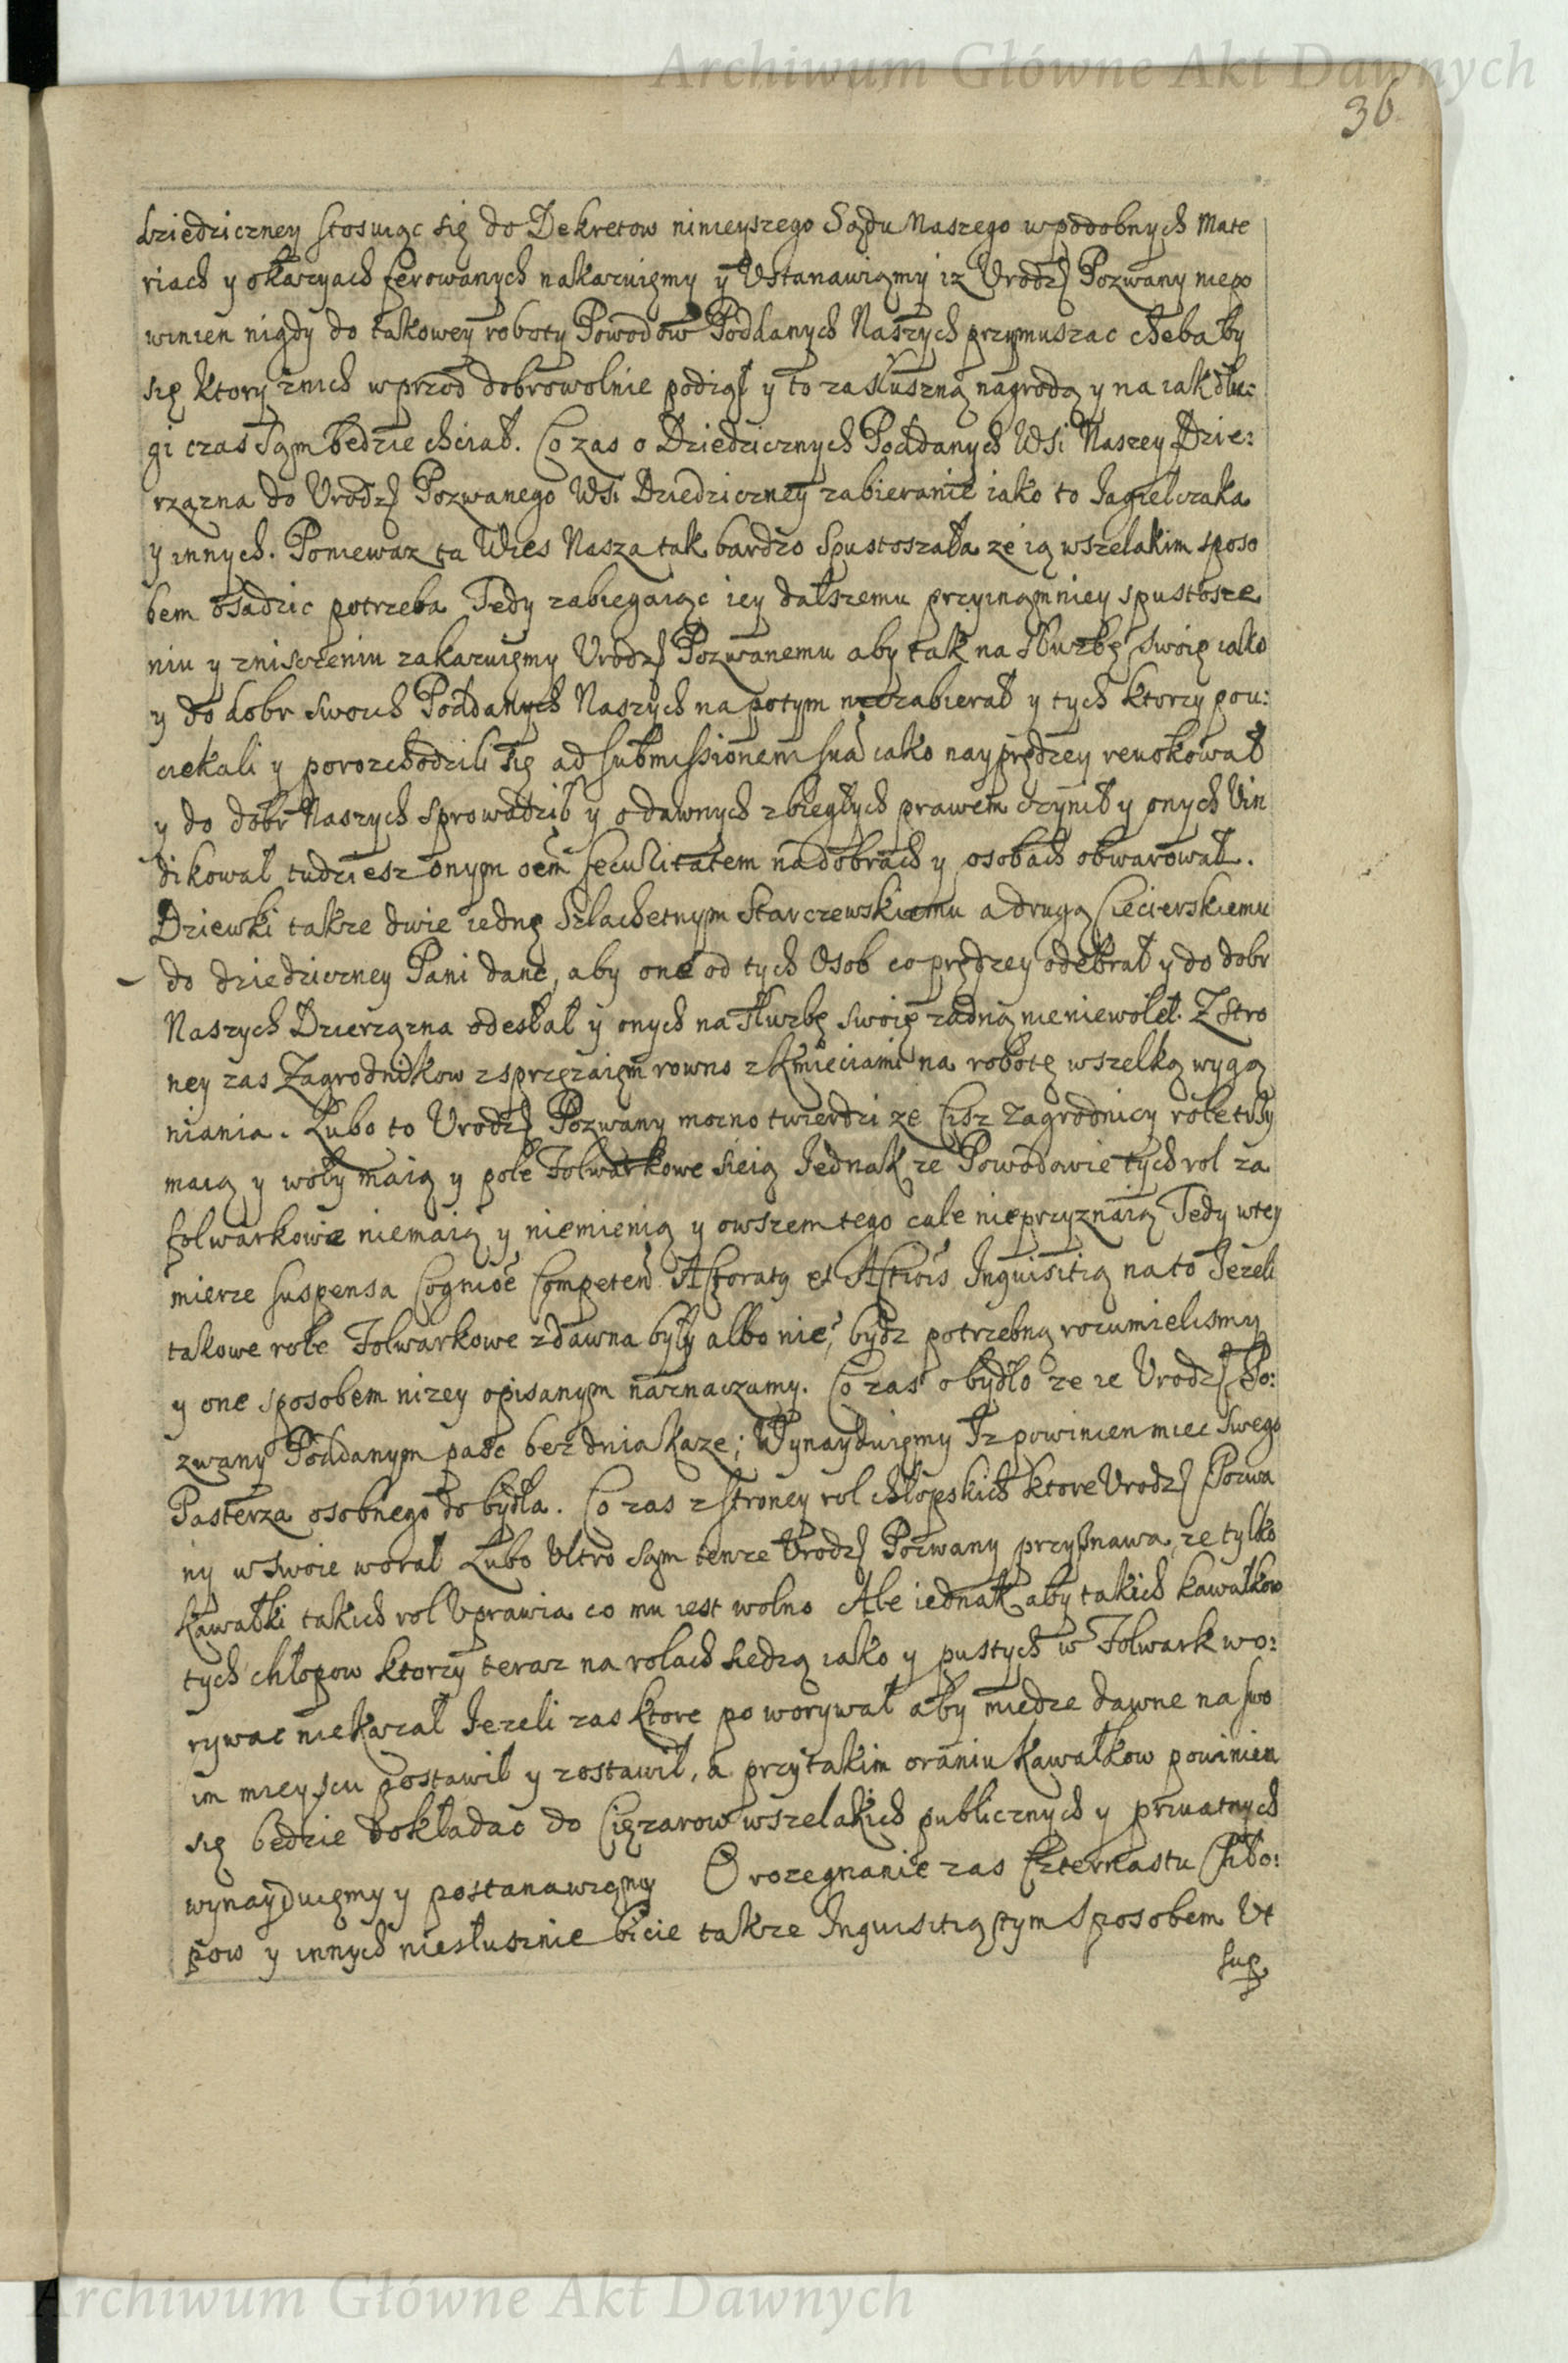 Archiwum Główne Akt Dawnych
36
dziedziczney stosuiąc się do Dekretow ninieyszego Sądu Naszego w podobnych mate
riach y okazyach ferowanych nakazuięmy y Ustanawiąmy iz Urodz Pozwany niepo
winien nigdy do takowey roboty Powodow Poddanych Naszych przymuszac chebaby
się ktory znich wprzod dobrowolnie podiął y to za słuszną nagrodą y na iak dłu:
gi czas sąm będzie chciał. Co zas o Dziedzicznych Poddanych Wsi Naszey Dzie:
rzązna do Urodz Pozwanego Wsi Dziedziczney zabieranie iako to Jagielczaka
y innych. Poniewaz ta Wies Nasza tak bardzo spustoszała ze ią wszelakim sposo
bem osadzic potrzeba Tedy zabiegaiąc iey dalszemu przyinąmniey spustosze
niu y zniszczeniu zakazuięmy Urodz Pozwanemu aby tak na słuzbę swoię iako
y do dobr swoich Poddanych Naszych na potym niezabierał y tych ktorzy pou:
ciekali y porozchodzili się ad submissionem sua iako nayprędzey reuokował
y do dobr Naszych sprowadził y o dawnych zbiegłych prawem czynił y onych Vin
dikował tudziesz onym oem securitatem na dobrach y osobach obwarował.
Dziewki takze dwie iednę Szlachetnym Starczewskiemu a drugą Ciecierskiemu
do dziedziczney Pani dane, aby one od tych Osob co prędzey odebrał y do dobr
Naszych Dzierzązna odesłał y onych na słuzbę swoię zadną nieniewolił. Z stro
ney zas Zagrodnikow z sprzęzaięm rowno z Kmieciami na robotę wszelką wygą
niania. Lubo to Urodz Pozwany mocno twierdzi ze Cisz Zagrodnicy role
maią y woły maią y pole Folwarkowe sieią Jednak ze Powodowie tych rol za
folwarkowe niemaią y niemienią y owszem tego cale nieprzyznaią Tedy wtey
mierze suspensa Cognioe Competen Actoraty et Actiois Inquisitią na to Jezeli
takowe role Folwarkowe zdawna były albo nie, bydz potrzebną rozumielismy
y one sposobem nizey opisanym naznaczamy. Co zas o bydło ze ie Urodz Po:
zwany Poddanym pasc bez dnia kaze; Wynayduięmy Iz powinien miec swego
Pasterza osobnego do bydła. Co zas z stroney rol chłopskich ktore Urodz Pozwa
ny w swoie worał Lubo Ultro sąm tenze Urodz Pozwany przyznawa, ze tylko
Kawałki takich rol Uprawia co mu iest wolno Ale iednak aby takich kawałkow
tych chłopow ktorzy teraz na rolach siedzą iako y pustych w Folwark wo:
rywac niekazał Jezeli zas ktore poworywał aby miedze dawne na swo
im mieyscu postawił y zostawił, a przy takim oraniu Kawałkow powinien
się bedzie dokładac do Cięzarow wszelakich publicznych y priuatnych
wynayduięmy y postanawiąmy O rozegnanie zas Czternastu Chło:
pow y innych niesłusznie bicie takze Inquisitią tym sposobem Ut
sup
Archiwum Główne Akt Dawnych